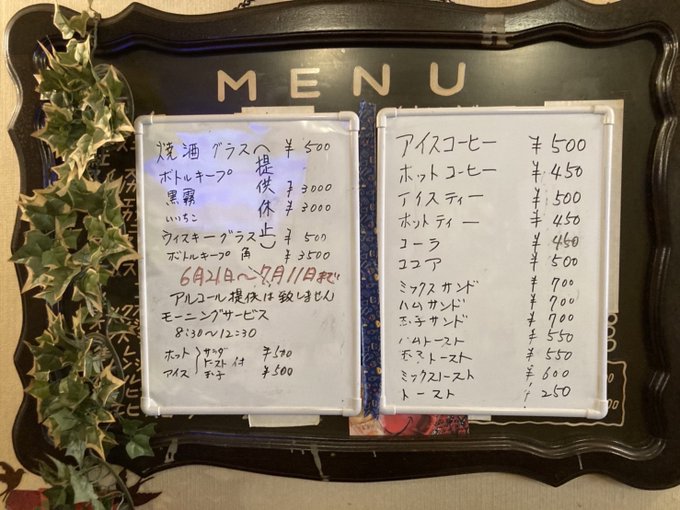 MENU
焼酒 グラス ¥500
(提供休止)
ボトルキープ
黒霧 ¥3000
いいちこ ¥3000
ウィスキーグラス ¥500
ボトルキープ 角 ¥3500
6月21日～7月11日まで
アルコール提供は致しません
モーニングサービス
8:30～12:30
ホット サラダ ¥500
トースト付
アイス 玉子 ¥500
アイスコーヒー ¥500
ホットコーヒー ¥450
アイスティー ¥500
ホットティー ¥450
コーラ ¥450
ココア ¥500
ミックスサンド ¥700
ハムサンド ¥700
玉子サンド ¥700
ハムトースト ¥550
玉子トースト ¥550
ミックストースト ¥600
トースト ¥250